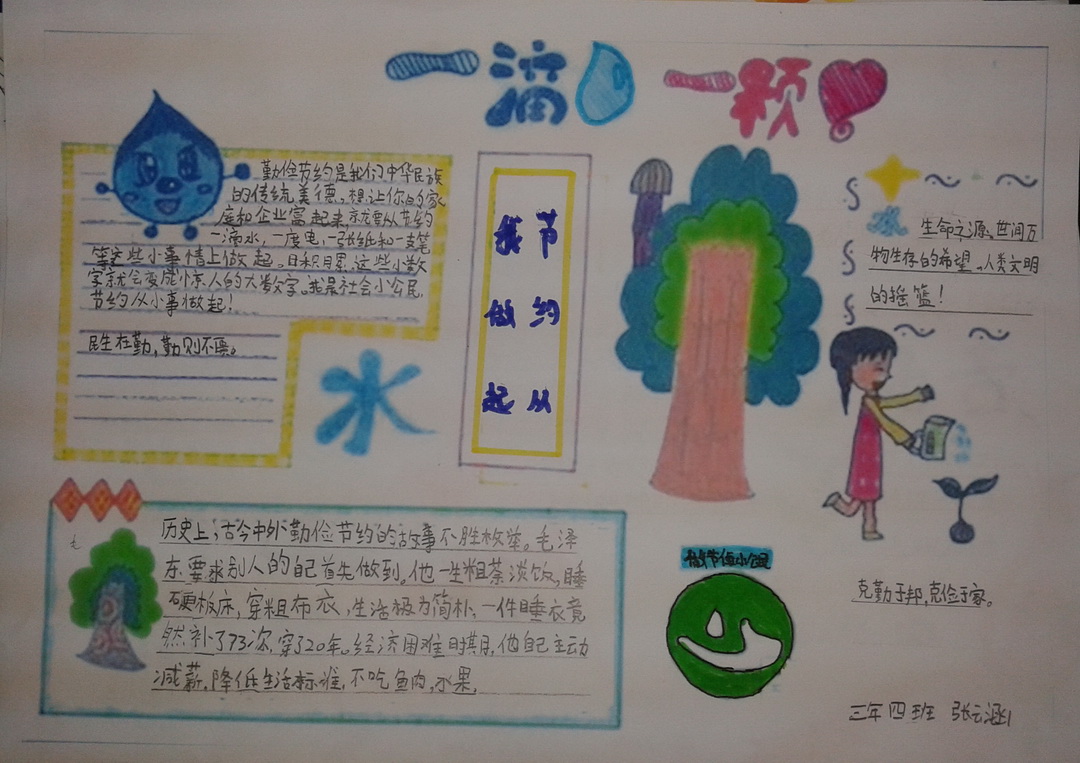 一滴 一颗
勤俭节约是我们中华民族
的传统美德。想让你的家
庭和企业富起来,就要从节约
一滴水,一度电,一张纸和一支笔
等这些小事情上做起。日积月累,这些小数
字就会变成惊人的大数字。我是社会小公民,
节约从小事做起!
民生在勤,勤则不匮。
水
节约从
我做起
水 生命之源、世间万
物生存的希望、人类文明
的摇篮!
历史上,古今中外勤俭节约的故事不胜枚举。毛泽
东要求别人的自己首先做到。他一生粗茶淡饭,睡
硬板床,穿粗布衣,生活极为简朴、一件睡衣竟
然补了73次,穿了20年。经济困难时期,他自己主动
减薪,降低生活标准,不吃鱼肉,水果,
克勤于邦,克俭于家。
三年四班 张云涵